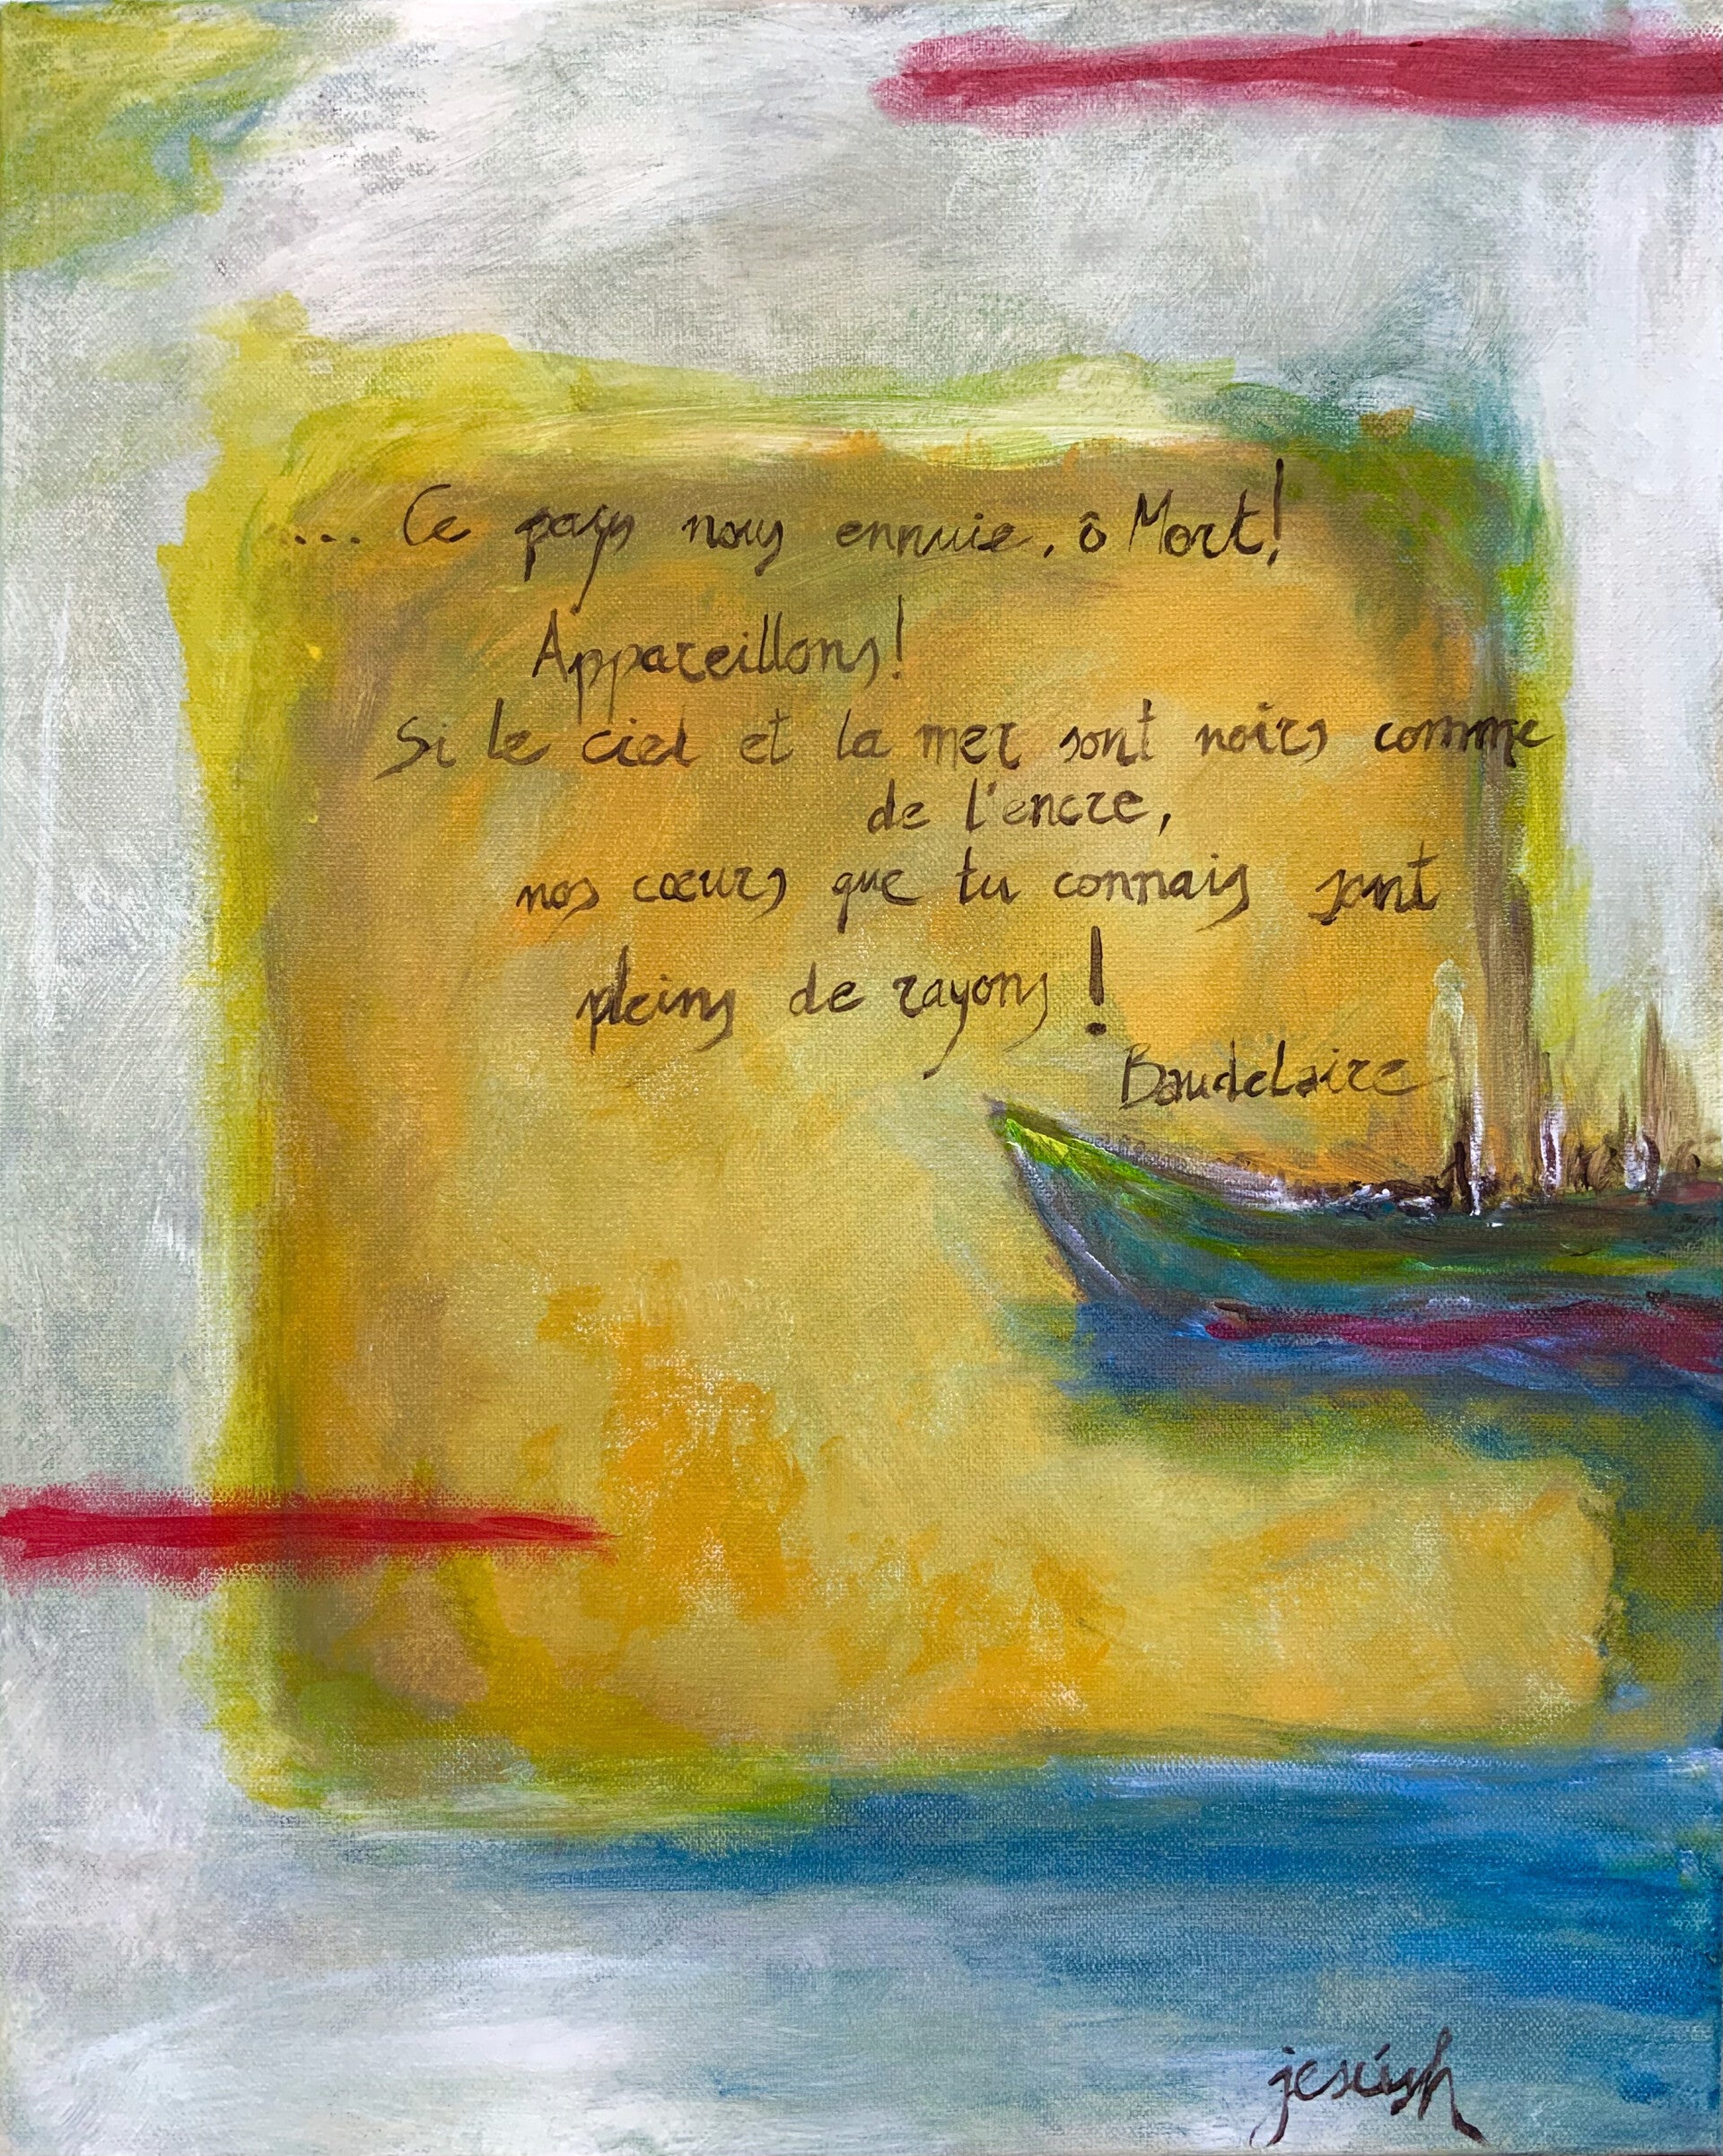 ... Ce pays nous ennuie, ô Mort!
Appareillons!
Si le ciel et la mer sont noirs comme
de l'encre,
nos cœurs que tu connais sont
pleins de rayons!
Baudelaire